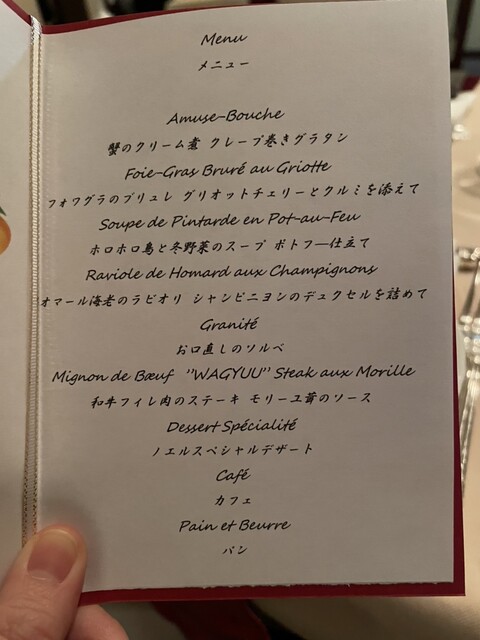 Menu
メニュー
Amuse-Bouche
蟹のクリーム煮 クレープ巻きグラタン
Foie-Gras Bruré au Griotte
フォワグラのブリュレ グリオットチェリーとクルミを添えて
Soupe de Pintarde en Pot-au-Feu
ホロホロ鳥と冬野菜のスープ ポトフ―仕立て
Raviole de Homard aux Champignons
オマール海老のラビオリ シャンピニヨンのデュクセルを詰めて
Granité
お口直しのソルベ
Mignon de Bœuf "WAGYUU" Steak aux Morille
和牛フィレ肉のステーキ モリーユ茸のソース
Dessert Spécialité
ノエルスペシャルデザート
Café
カフェ
Pain et Beurre
パン